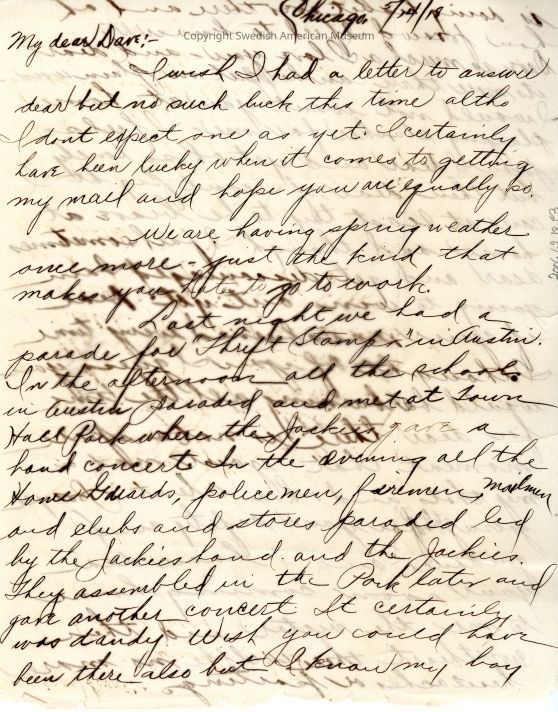 Chicago, 5/24/18
Copyright Swedish American Museum
My dear Dave:-
I wish I had a letter to answer
dear but no such luck this time altho
I dont expect one as yet. I certainly
have been lucky when it comes to getting
my mail and hope you are equally so.
We are having spring weather
once more - just the kind that
makes you hate to go to work.
Last night we had a
parade for "Thrift Stamps" in Austin.
In the afternoon all the schools
in Austin paraded and met at Town
Hall Park where the Jackies gave a
band concert. In the evening all the
Home Guards, policemen, firemen, mailmen
and clubs and stores paraded led
by the Jackies band. and the Jackies.
They assembled in the Park later and
gave another concert. It certainly
was dandy. Wish you could have
been there also but I know my boy